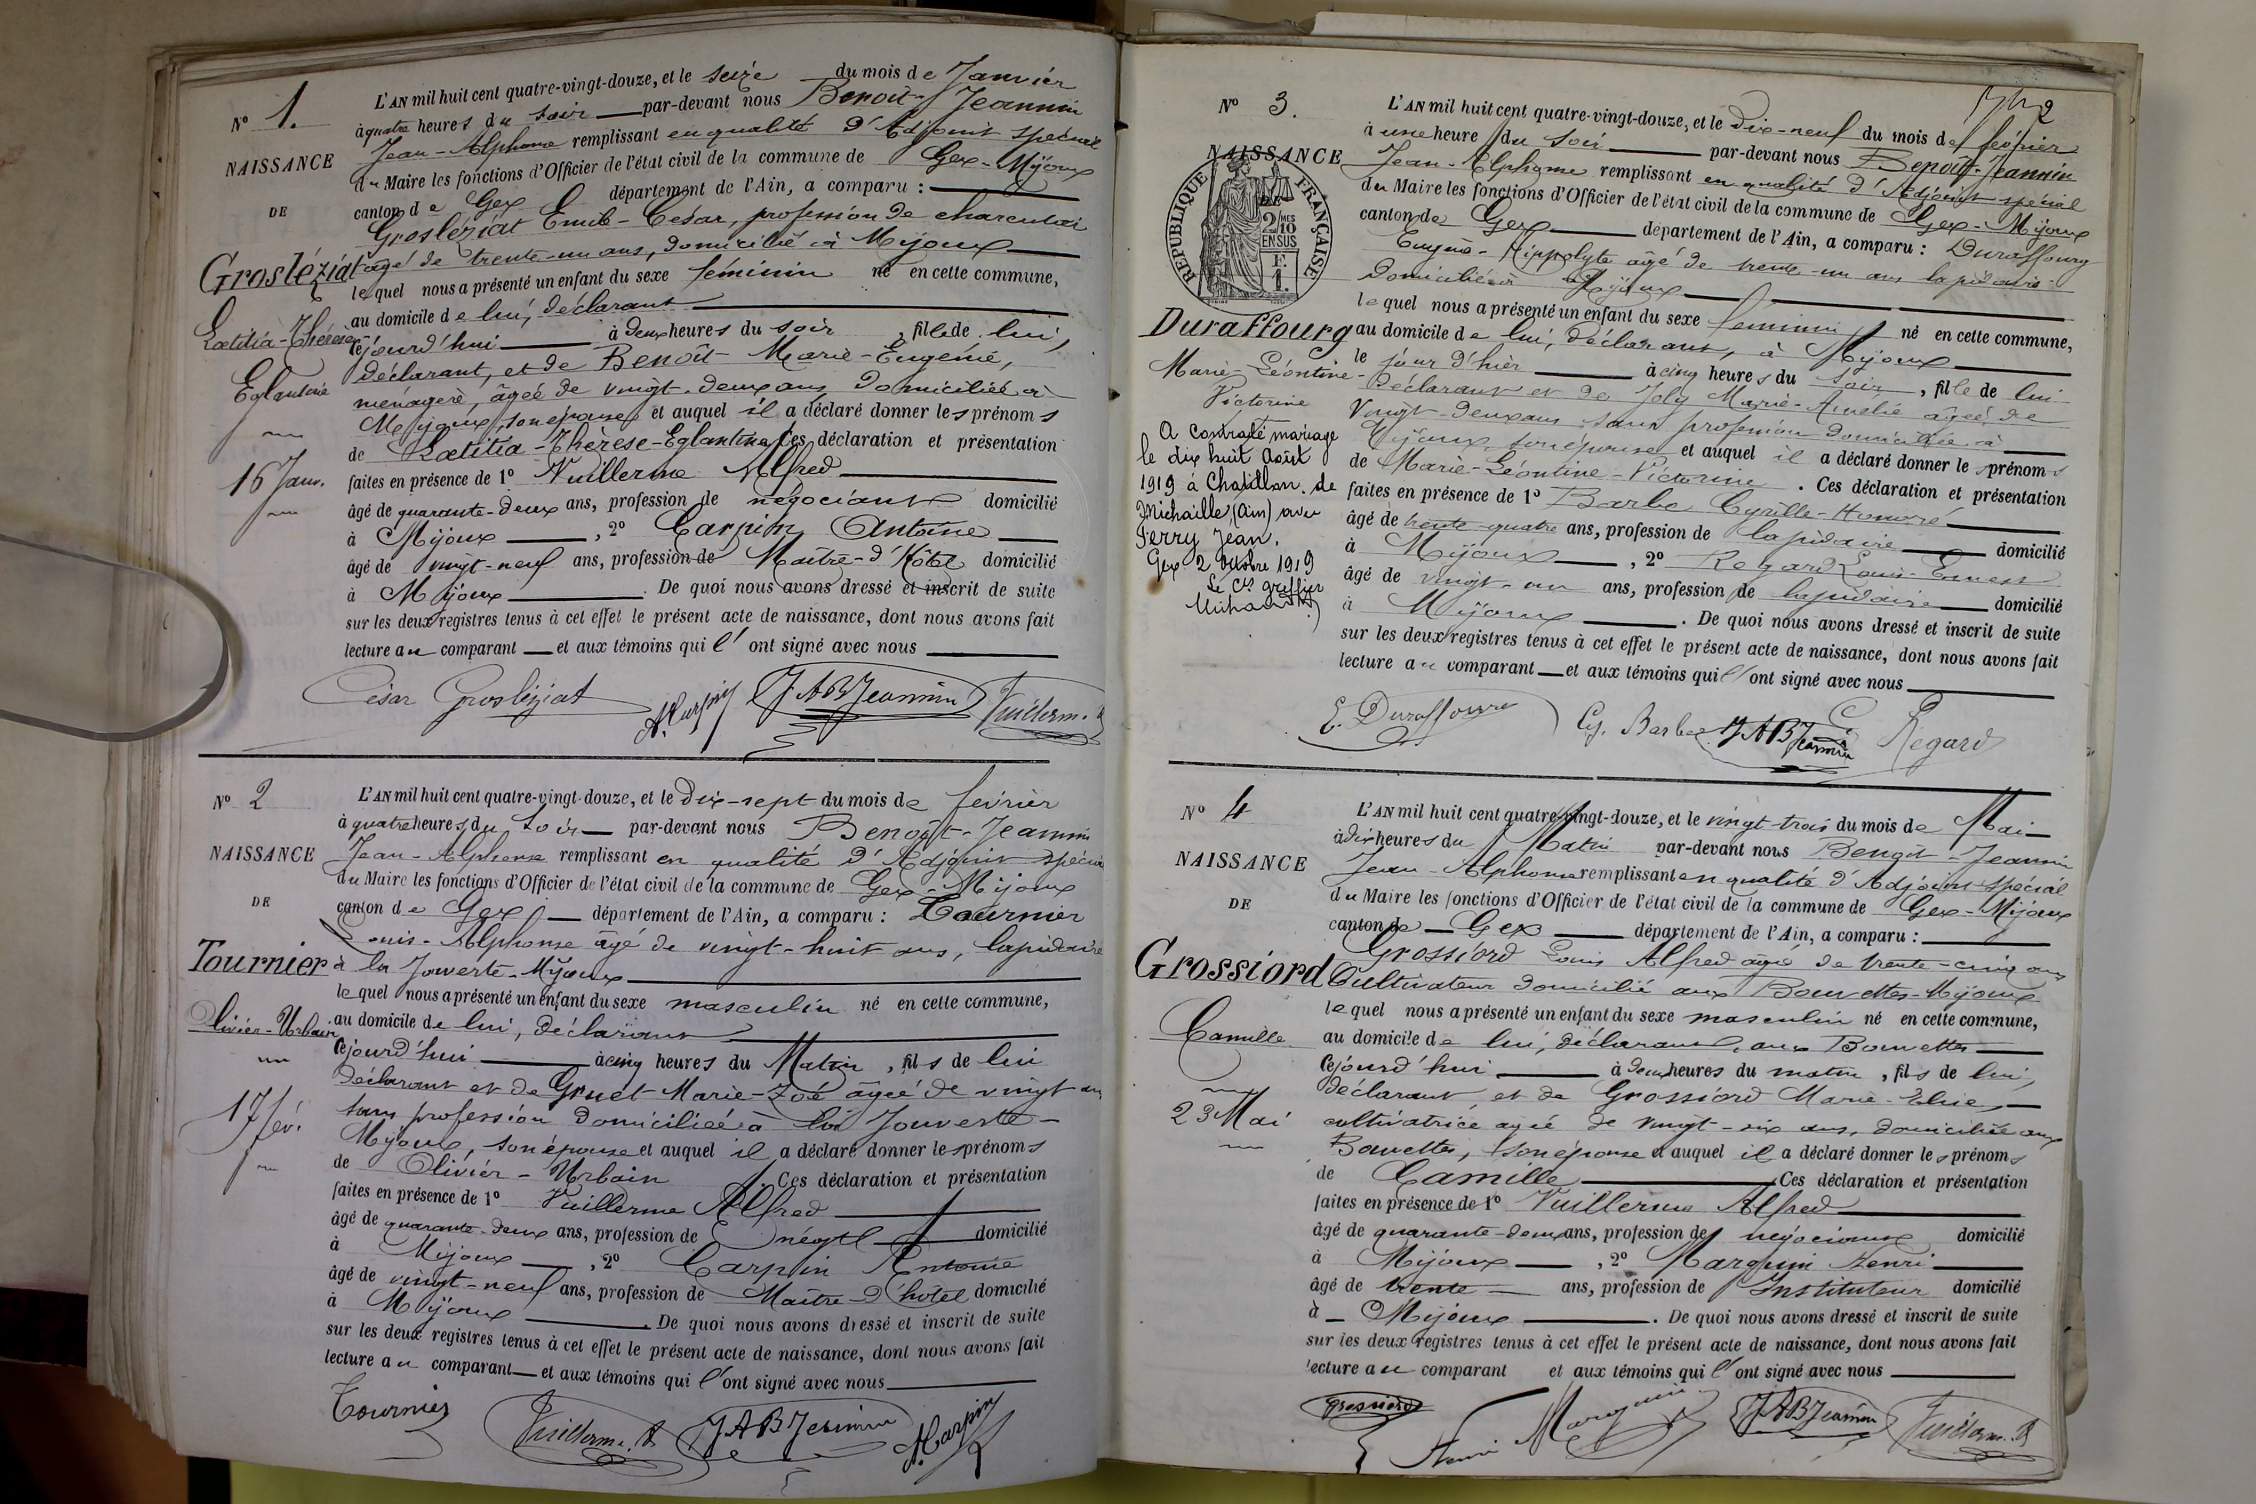 N° 1.
NAISSANCE
DE
Grosléziat
Lœtitia-Thérèse
Eglantine
16 Janv.
L'AN mil huit cent quatre-vingt-douze, et le seize du mois de Janvier
à quatre heures du soir par-devant nous Benoît-Jeannin
Jean-Alphonse remplissant en qualité d'Adjoint spécial
du Maire les fonctions d'Officier de l'état civil de la commune de Gex-Mijoux
canton de Gex département de l'Ain, a comparu :
Grosléziat Emile-César, profession de charcutier
âgé de trente-un ans, domicilié à Mijoux
lequel nous a présenté un enfant du sexe féminin né en cette commune,
au domicile de lui, déclarant
cejourd'hui à deux heures du soir, fille de lui,
déclarant, et de Benoît Marie-Eugénie,
ménagère, âgée de vingt-deux ans, domiciliée à
Mijoux, son épouse et auquel il a déclaré donner les prénoms
de Lœtitia-Thérèse-Eglantine Ces déclaration et présentation
faites en présence de 1° Vuillerme Alfred
âgé de quarante-deux ans, profession de négociant domicilié
à Mijoux, 2° Carpin Antoine
âgé de vingt-neuf ans, profession de Maître-d'Hôtel domicilié
à Mijoux. De quoi nous avons dressé et inscrit de suite
sur les deux registres tenus à cet effet le présent acte de naissance, dont nous avons fait
lecture au comparant et aux témoins qui l'ont signé avec nous
César Grosléziat A. Carpin J A B Jeannin Vuillerme. A
N° 2
NAISSANCE
DE
Tournier
Olivier-Urbain
17 fév.
L'AN mil huit cent quatre-vingt-douze, et le Dix-sept du mois de février
à quatre heures du soir par-devant nous Benoît-Jeannin
Jean-Alphonse remplissant en qualité d'Adjoint spécial
du Maire les fonctions d'Officier de l'état civil de la commune de Gex-Mijoux
canton de Gex département de l'Ain, a comparu : Tournier
Louis-Alphonse âgé de vingt-huit ans, lapidaire
à la Jouverte-Mijoux
lequel nous a présenté un enfant du sexe masculin né en cette commune,
au domicile de lui, déclarant
cejourd'hui à cinq heures du Matin, fils de lui
déclarant et de Gruet Marie-Zoé âgée de vingt ans
sans profession domiciliée à la Jouverte-
Mijoux, son épouse et auquel il a déclaré donner les prénoms
de Olivier-Urbain. Ces déclaration et présentation
faites en présence de 1° Vuillerme Alfred
âgé de quarante-deux ans, profession de négt domicilié
à Mijoux, 2° Carpin Antoine
âgé de vingt-neuf ans, profession de Maître-d'hôtel domicilié
à Mijoux. De quoi nous avons dressé et inscrit de suite
sur les deux registres tenus à cet effet le présent acte de naissance, dont nous avons fait
lecture au comparant et aux témoins qui l'ont signé avec nous
Tournier Vuillerme. A J A B Jeannin A. Carpin
2
N° 3.
NAISSANCE
RÉPUBLIQUE FRANÇAISE
2 MES 10
EN SUS
F.
1.
Duraffourg
Marie-Léontine-
Victorine
A contracté mariage
le dix huit Août
1919 à Chatillon de
Michaille, (Ain) avec
Ferry Jean.
Gex 2 octobre 1919
Le Cs greffier
L'AN mil huit cent quatre-vingt-douze, et le Dix-neuf du mois de février
à une heure du soir par-devant nous Benoît-Jeannin
Jean-Alphonse remplissant en qualité d'Adjoint spécial
du Maire les fonctions d'Officier de l'état civil de la commune de Gex-Mijoux
canton de Gex département de l'Ain, a comparu : Duraffourg
Eugène-Hippolyte âgé de trente-un ans lapidaire
domicilié à Mijoux
lequel nous a présenté un enfant du sexe féminin né en cette commune,
au domicile de lui, déclarant, à Mijoux
le jour d'hier à cinq heures du soir, fille de lui
déclarant et de Joly Marie-Amélie âgée de
vingt-deux ans sans profession domiciliée à
Mijoux, son épouse et auquel il a déclaré donner les prénoms
de Marie-Léontine-Victorine. Ces déclaration et présentation
faites en présence de 1° Barbe Cyrille-Honoré
âgé de trente-quatre ans, profession de lapidaire domicilié
à Mijoux, 2° Regard Louis-Ernest
âgé de vingt-un ans, profession de lapidaire domicilié
à Mijoux. De quoi nous avons dressé et inscrit de suite
sur les deux registres tenus à cet effet le présent acte de naissance, dont nous avons fait
lecture au comparant et aux témoins qui l'ont signé avec nous
E. Duraffourg Cy. Barbe J A B Jeannin Regard
N° 4
NAISSANCE
DE
Grossiord
Camille
23 Mai
L'AN mil huit cent quatre-vingt-douze, et le vingt-trois du mois de Mai
à dix heures du Matin par-devant nous Benoît-Jeannin
Jean-Alphonse remplissant en qualité d'Adjoint spécial
du Maire les fonctions d'Officier de l'état civil de la commune de Gex-Mijoux
canton de Gex département de l'Ain, a comparu :
Grossiord Louis Alfred âgé de trente-cinq ans
Cultivateur domicilié aux Bouvettes-Mijoux
lequel nous a présenté un enfant du sexe masculin né en cette commune,
au domicile de lui, déclarant, aux Bouvettes
cejourd'hui à deux heures du matin, fils de lui,
déclarant, et de Grossiord Marie-Elise,
cultivatrice agée de vingt-six ans, domiciliée aux
Bouvettes, son épouse et auquel il a déclaré donner les prénoms
de Camille Ces déclaration et présentation
faites en présence de 1° Vuillerme Alfred
âgé de quarante-deux ans, profession de négociant domicilié
à Mijoux, 2° Marquin Henri
âgé de trente ans, profession de Instituteur domicilié
à Mijoux. De quoi nous avons dressé et inscrit de suite
sur les deux registres tenus à cet effet le présent acte de naissance, dont nous avons fait
lecture au comparant et aux témoins qui l'ont signé avec nous
Grossiord Henri Marquin J A B Jeannin Vuillerme. A